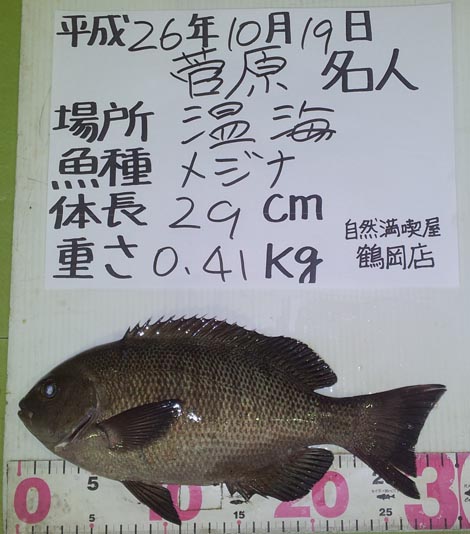 平成26年10月19日
菅原 名人
場所 温海
魚種 メジナ
体長 29 cm
重さ 0.41 kg
自然満喫屋
鶴岡店
0 5 10 20 25 30
5 25